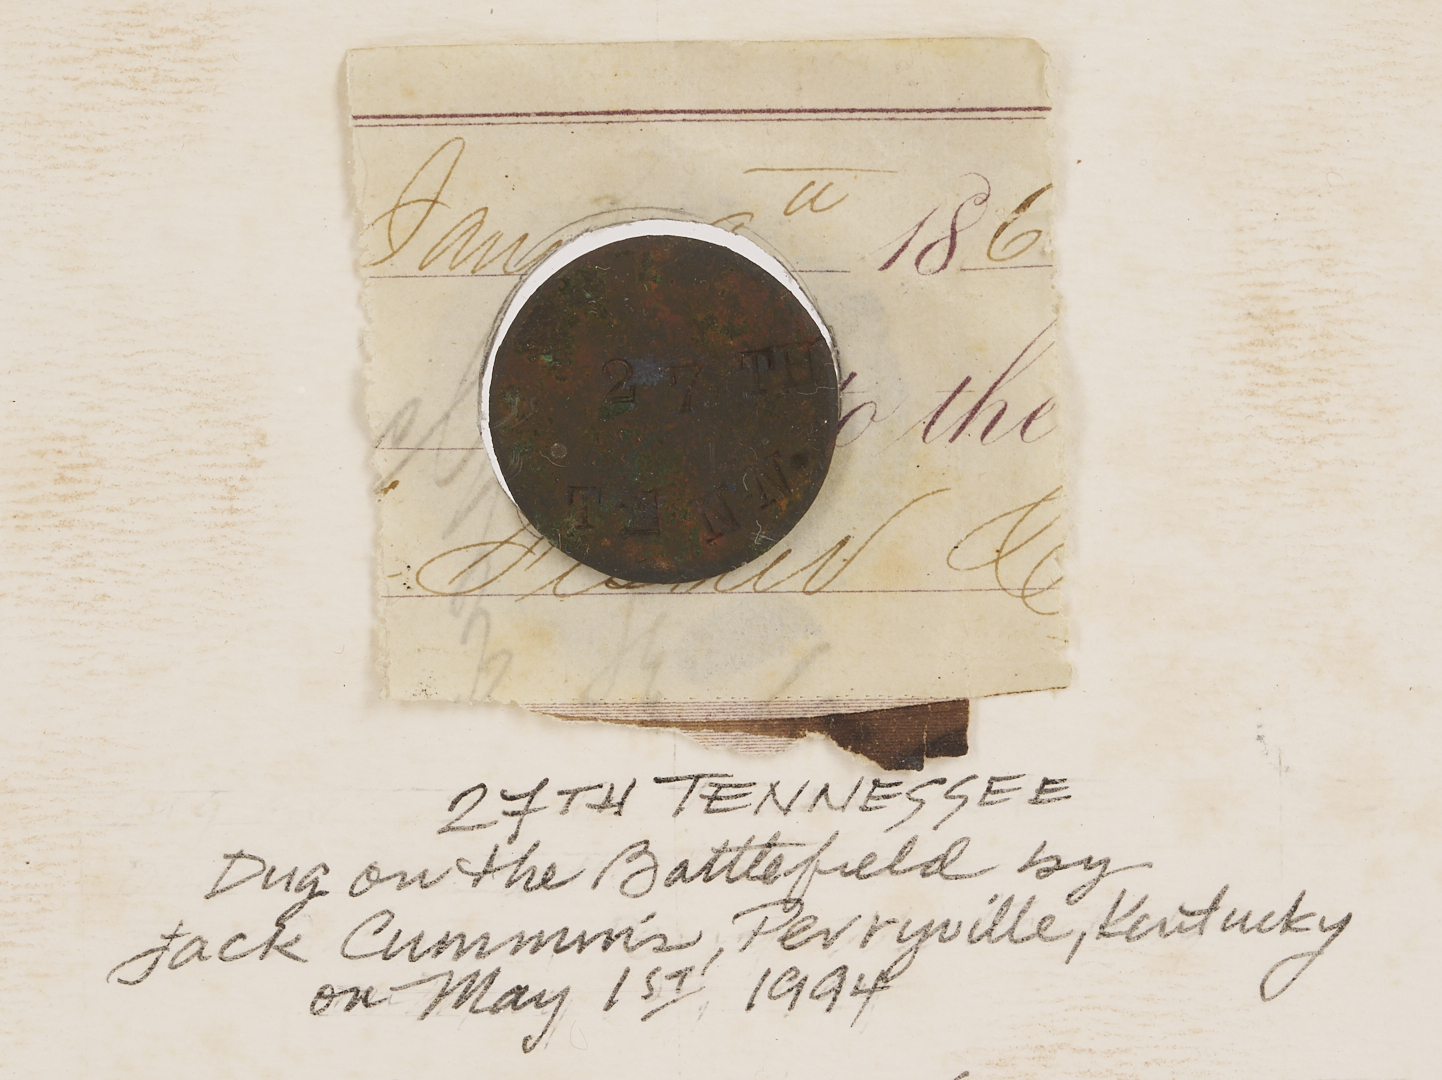 186
27TH
to the
TENN.
27TH TENNESSEE
Dug on the Battlefield by
Jack Cummins, Perryville, Kentucky
on May 1ST, 1994